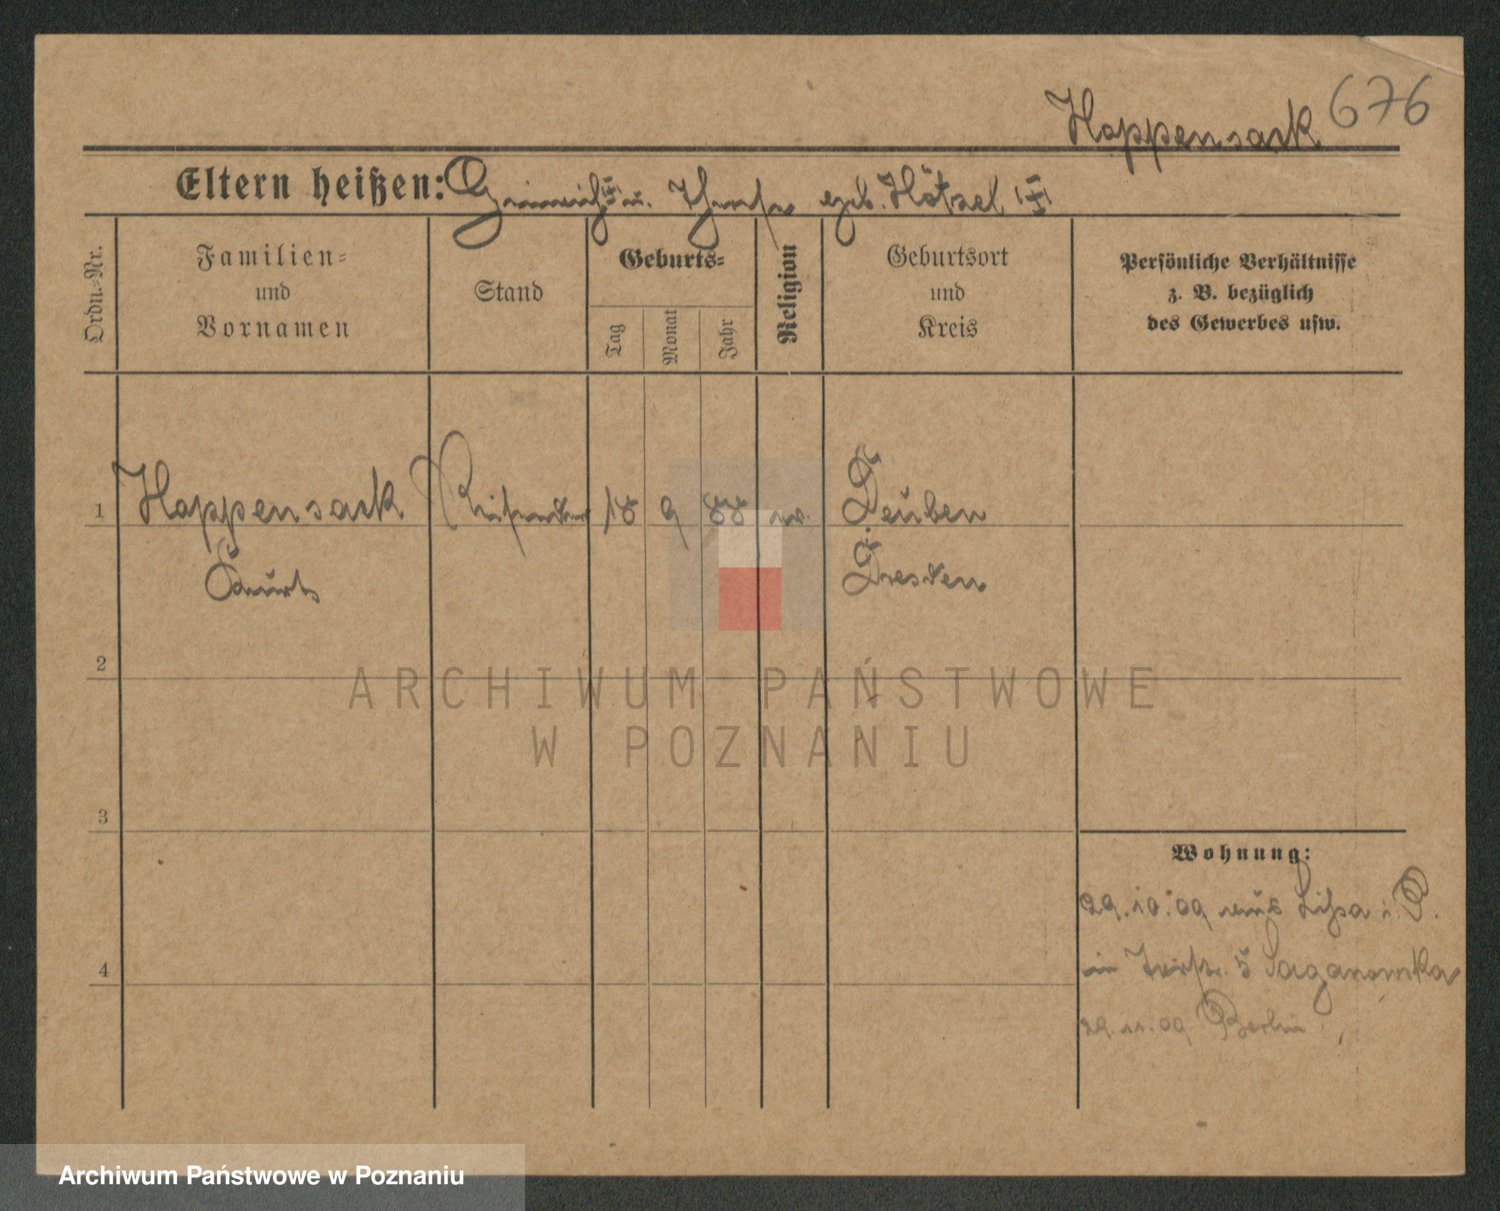 Hoppensack 676
Eltern heißen: Heinrich u. geb. Hötzel
Ordn.-Nr.
Familien-
und
Vornamen
Stand
Geburts-
Tag
Monat
Jahr
Religion
Geburtsort
und
Kreis
Persönliche Verhältnisse
z. B. bezüglich
des Gewerbes usw.
1 Hoppensack Reisender 18 9 88 ev. Deuben
Curt Dresden
2
ARCHIWUM PAŃSTWOWE
W POZNANIU
3
Wohnung:
29.10.09 aus Lissa i. P.
4
5 Saganowska
29.11.09 Berlin
Archiwum Państwowe w Poznaniu